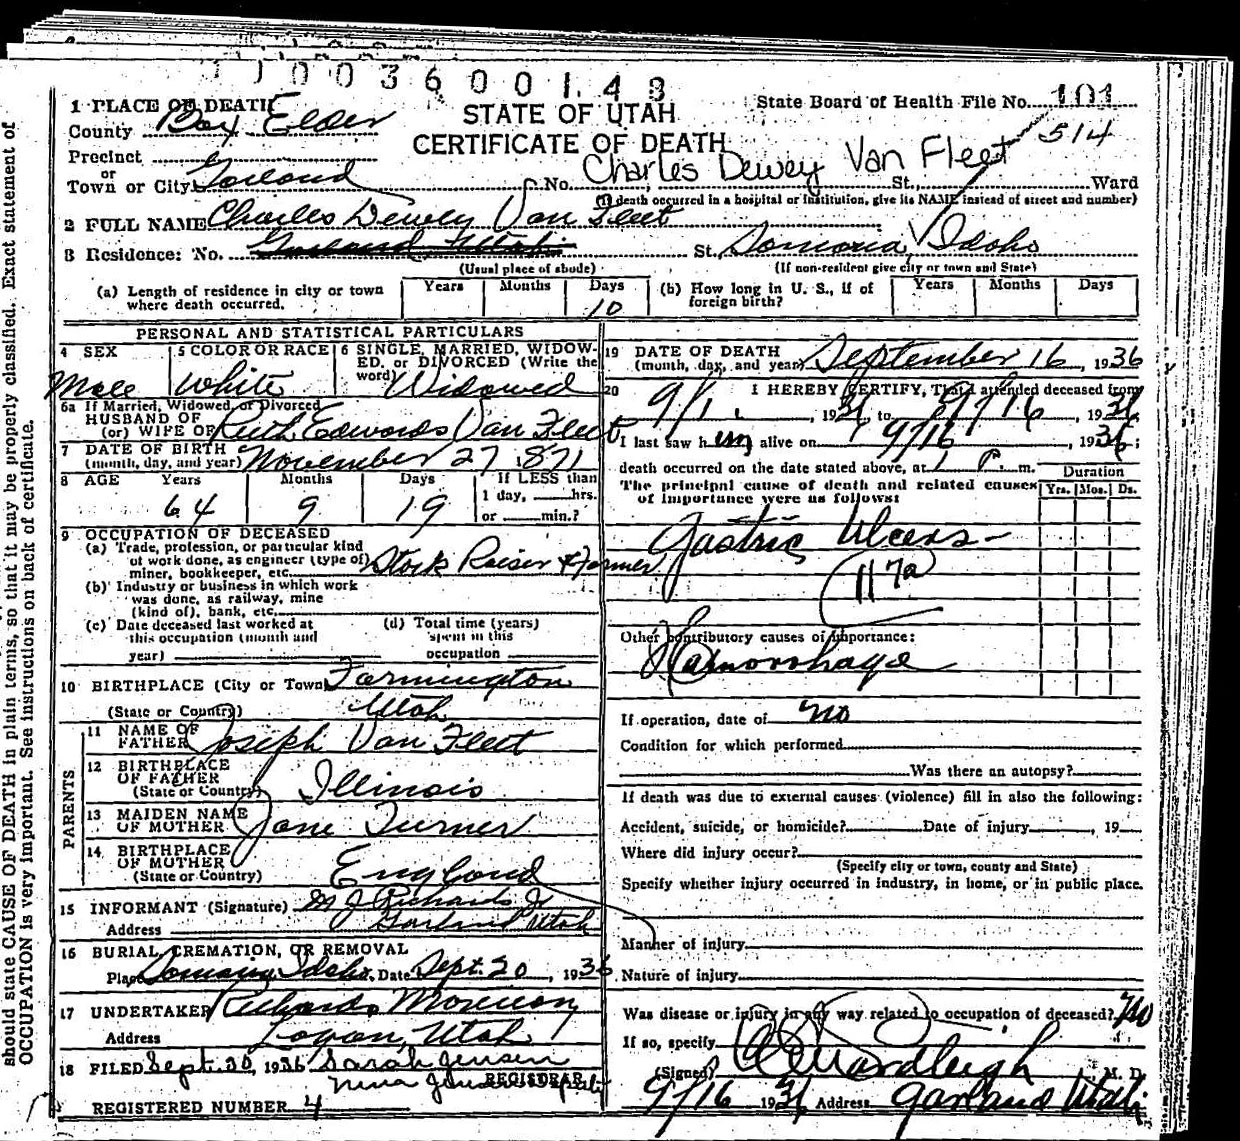 11003600148
1 PLACE OF DEATH
County Box Elder
Precinct
or
Town or City Garland No. St., Ward
STATE OF UTAH
CERTIFICATE OF DEATH
State Board of Health File No. 101
514
Charles Dewey Van Fleet
(If death occurred in a hospital or institution, give its NAME instead of street and number)
2 FULL NAME Charles Dewey Van Fleet
3 Residence: No. Garland Utah St. Samaria, Idaho
(Usual place of abode) (If non-resident give city or town and State)
(a) Length of residence in city or town where death occurred. Years Months Days 10
(b) How long in U. S., if of foreign birth? Years Months Days
PERSONAL AND STATISTICAL PARTICULARS
4 SEX Male
5 COLOR OR RACE White
6 SINGLE, MARRIED, WIDOWED, or DIVORCED (Write the word) Widowed
6a If Married, Widowed or Divorced
HUSBAND OF
(or) WIFE OF Ruth Edwards Van Fleet
7 DATE OF BIRTH
(month, day, and year) November 27 1871
8 AGE Years 64 Months 9 Days 19
If LESS than
1 day, hrs.
or min.?
9 OCCUPATION OF DECEASED
(a) Trade, profession, or particular kind
of work done, as engineer (type of)
miner, bookkeeper, etc. Stock Raiser & Farmer
(b) Industry or business in which work
was done, as railway, mine
(kind of), bank, etc.
(c) Date deceased last worked at
this occupation (month and
year)
(d) Total time (years)
spent in this
occupation
10 BIRTHPLACE (City or Town) Farmington
(State or Country) Utah
PARENTS
11 NAME OF
FATHER Joseph Van Fleet
12 BIRTHPLACE
OF FATHER
(State or Country) Illinois
13 MAIDEN NAME
OF MOTHER Jane Turner
14 BIRTHPLACE
OF MOTHER
(State or Country) England
15 INFORMANT (Signature) M J Richards Jr
Address Garland Utah
16 BURIAL, CREMATION, OR REMOVAL
Place Idaho, Date Sept. 20, 1936
17 UNDERTAKER Richards
Address Logan, Utah
18 FILED Sept. 30, 1936 Sarah Jensen
REGISTRAR
REGISTERED NUMBER 4
19 DATE OF DEATH
(month, day, and year) September 16, 1936
20 I HEREBY CERTIFY, That I attended deceased from
9/1, 1936 to 9/16, 1936
I last saw him alive on 9/16, 1936;
death occurred on the date stated above, at 1 P. m.
The principal cause of death and related causes
of importance were as follows:
Duration
Yrs. Mos. Ds.
Gastric Ulcers
117a
Other contributory causes of importance:
Hamorrhage
If operation, date of no
Condition for which performed
Was there an autopsy?
If death was due to external causes (violence) fill in also the following:
Accident, suicide, or homicide? Date of injury , 19
Where did injury occur?
(Specify city or town, county and State)
Specify whether injury occurred in industry, in home, or in public place.
Manner of injury
Nature of injury
Was disease or injury in any way related to occupation of deceased? No
If so, specify
(Signed) M. D.
9/16 1936 Address Garland Utah
should state CAUSE OF DEATH in plain terms, so that it may be properly classified. Exact statement of
OCCUPATION is very important. See instructions on back of certificate.